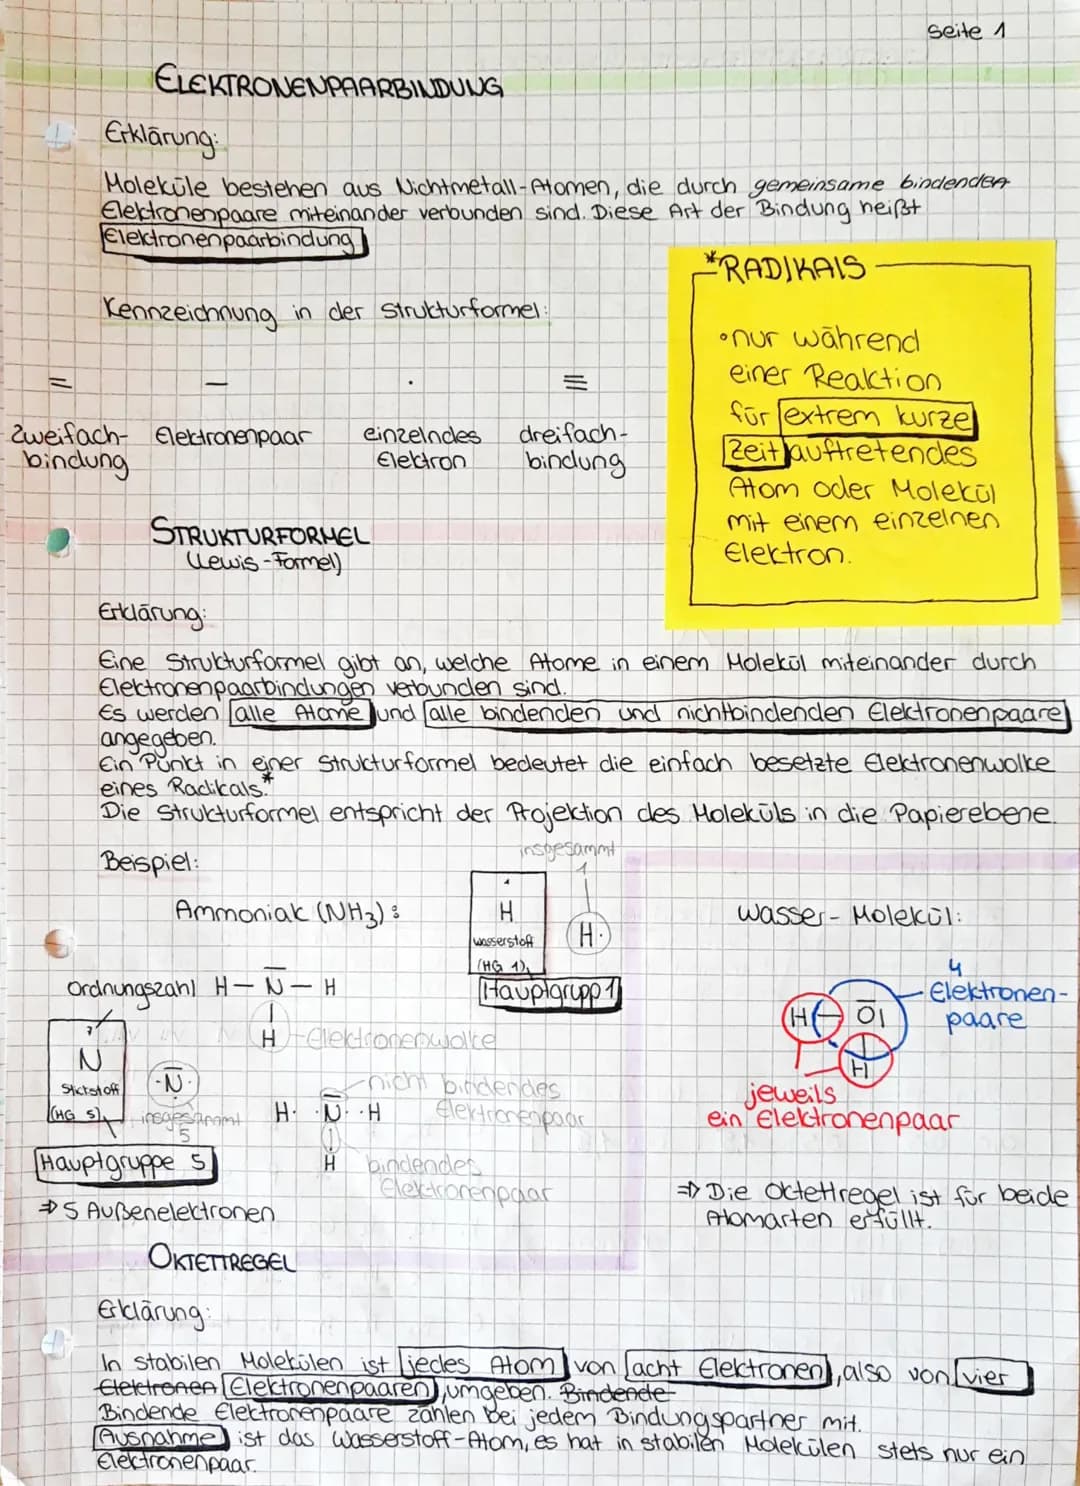 Seite 1
ELEKTRONENPAARBINDUNG
Erklärung:
Moleküle bestehen aus Nichtmetall-Atomen, die durch gemeinsame bindenden
Elektronenpaare miteinander verbunden sind. Diese Art der Bindung heißt
Elektronenpaarbindung
Kennzeichnung in der Strukturformel:
= – · ≡
Zweifach- Elektronenpaar einzelndes dreifach-
bindung Elektron bindung
*RADIKALS
•nur während
einer Reaktion
für extrem kurze
Zeit auftretendes
Atom oder Molekül
mit einem einzelnen
Elektron.
STRUKTURFORMEL
(Lewis-Formel)
Erklärung:
Eine Strukturformel gibt an, welche Atome in einem Molekül miteinander durch
Elektronenpaarbindungen verbunden sind.
Es werden alle Atome und alle bindenden und nichtbindenden Elektronenpaare
angegeben.
Ein Punkt in einer Strukturformel bedeutet die einfach besetzte Elektronenwolke
eines Radikals.*
Die Strukturformel entspricht der Projektion des Moleküls in die Papierebene.
Beispiel:
Ammoniak (NH₃):
insgesammt
1
1
H
Wasserstoff
(HG 1)
H·
Hauptgrupp 1
Ordnungszahl
H – N – H
H
Elektronenwolke
7
N
Stickstoff
(HG 5)
·N·
insgesammt
5
Hauptgruppe 5
⇒ 5 Außenelektronen
H· ·N· ·H
H
nicht bindendes
Elektronenpaar
bindendes
Elektronenpaar
Wasser-Molekül:
4
Elektronen-
paare
H – O|
H
jeweils
ein Elektronenpaar
⇒ Die Oktettregel ist für beide
Atomarten erfüllt.
OKTETTREGEL
Erklärung:
In stabilen Molekülen ist jedes Atom von acht Elektronen, also von vier
Elektronen Elektronenpaaren, umgeben. Bindende
Bindende Elektronenpaare zählen bei jedem Bindungspartner mit.
Ausnahme ist das Wasserstoff-Atom, es hat in stabilen Molekülen stets nur ein
Elektronenpaar.